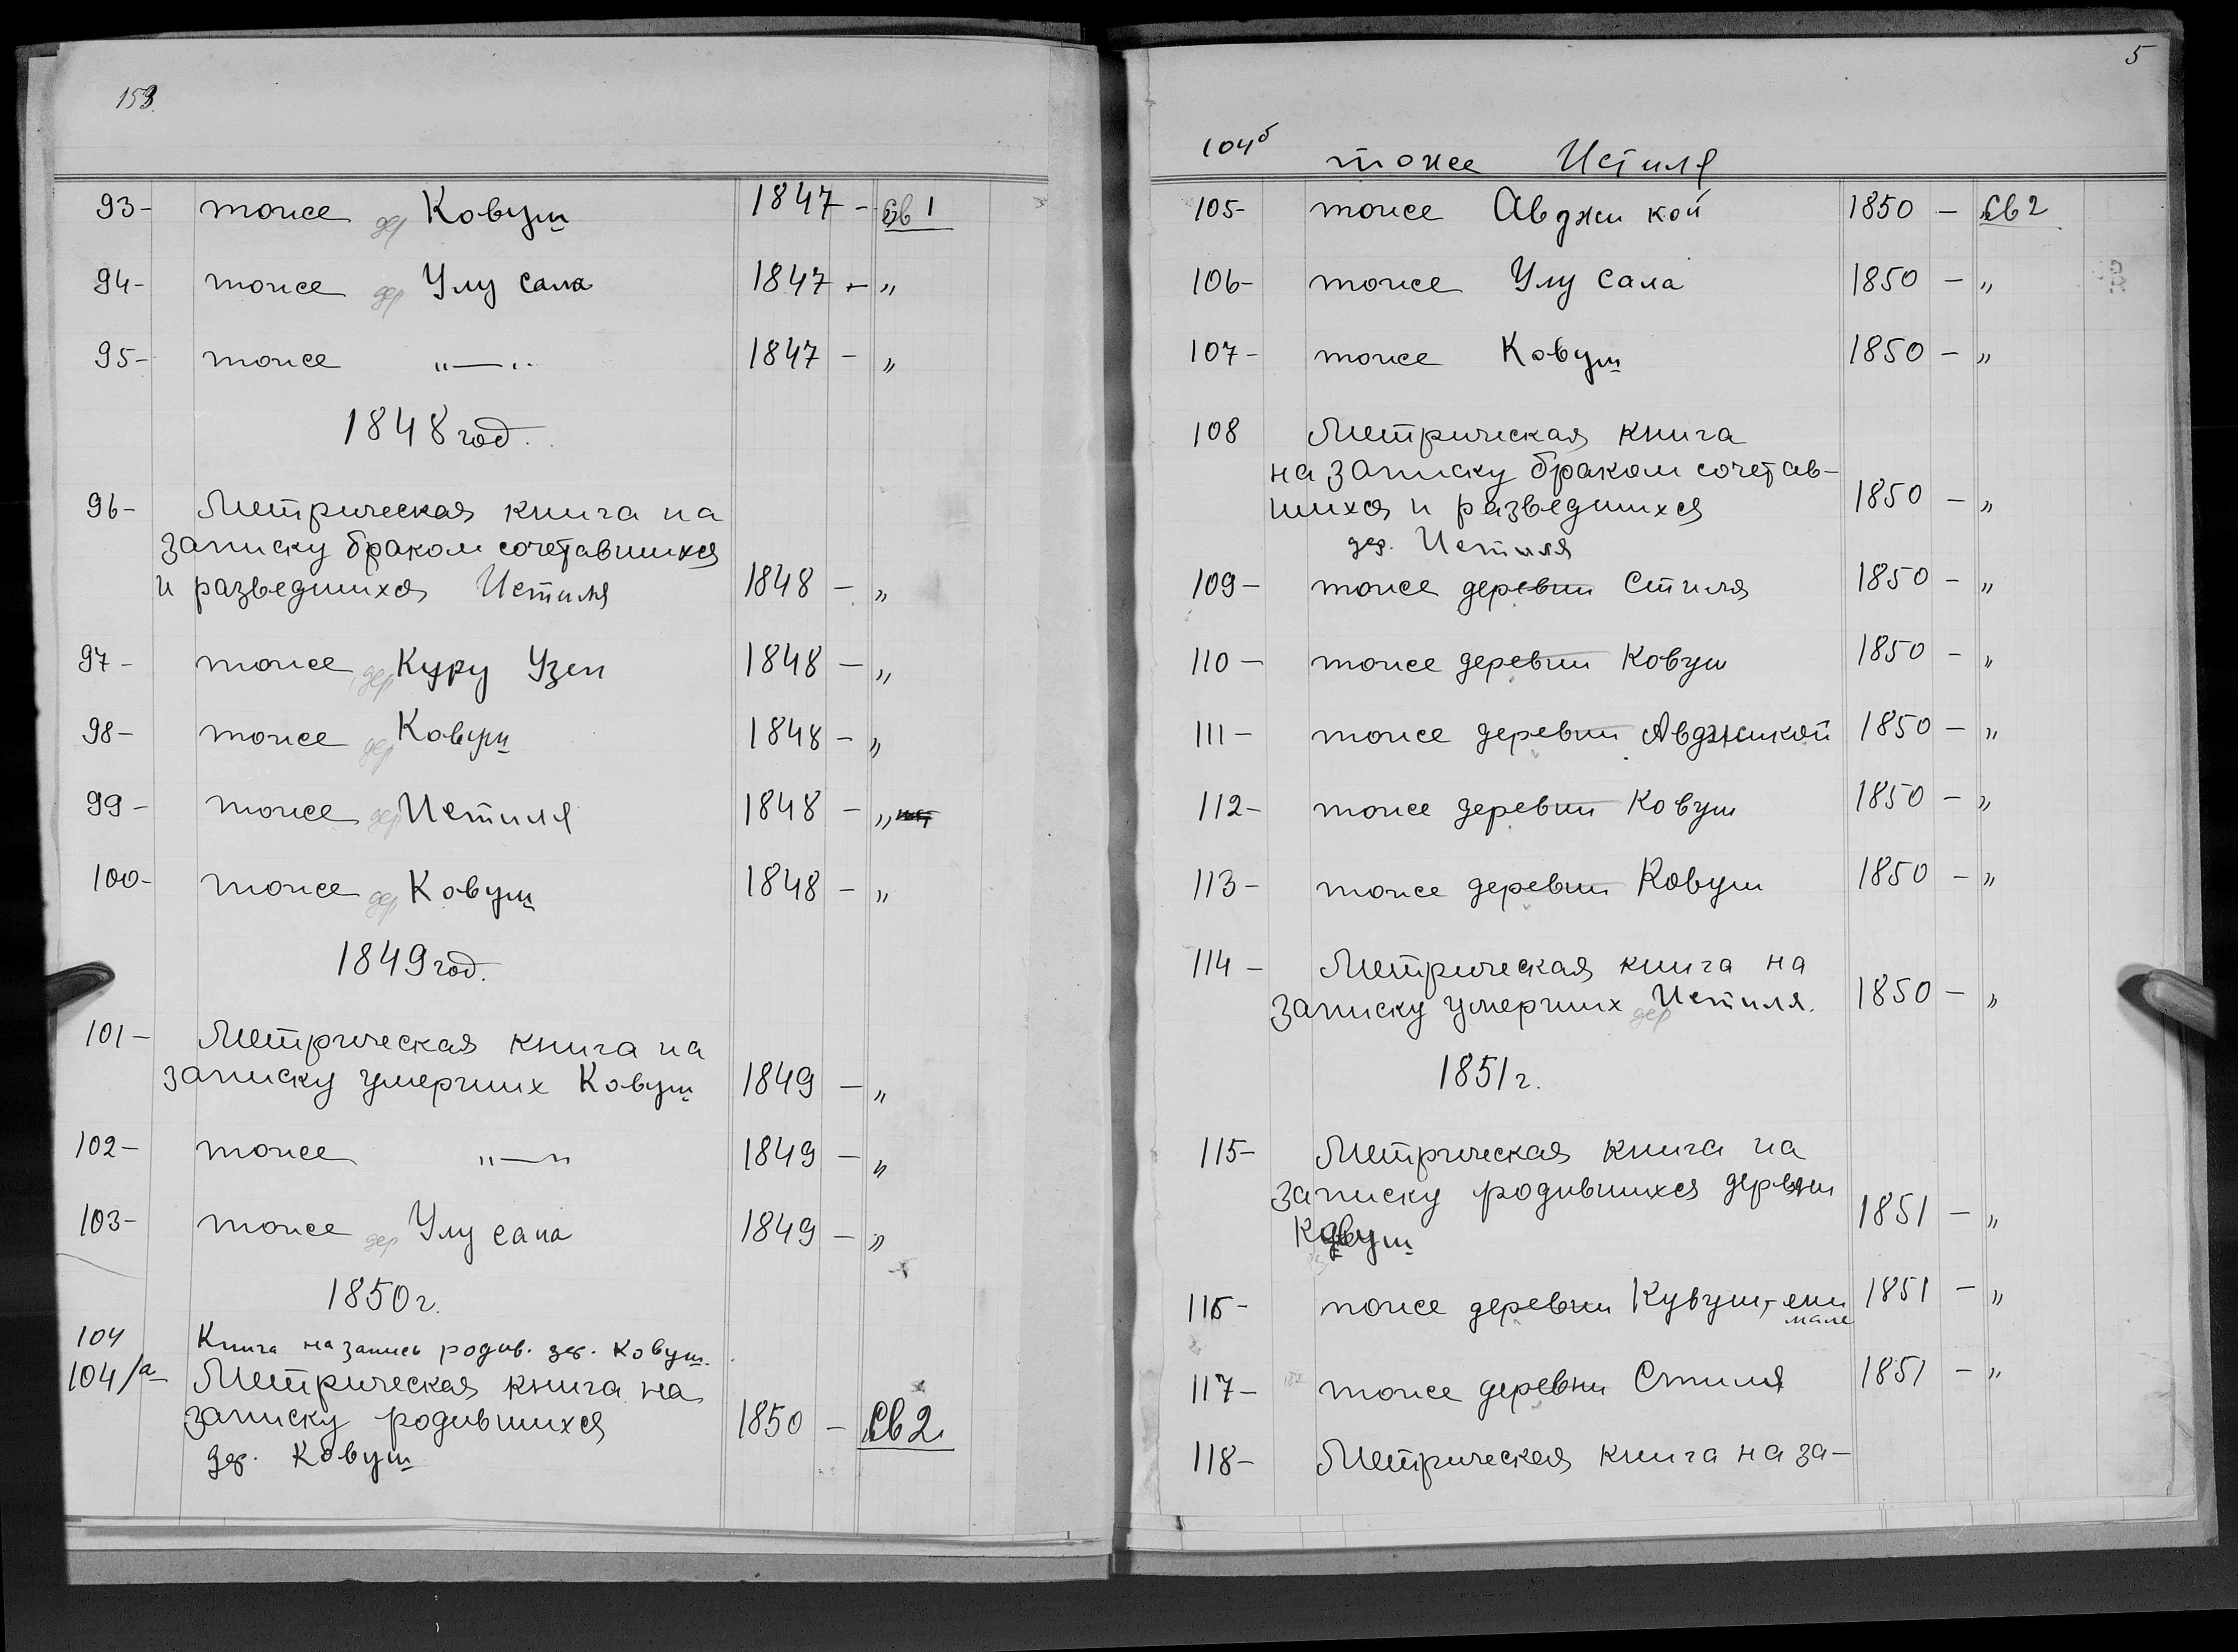 153.
93- тоже дер Ковуш 1847 - Св 1
94- тоже дер Улу сала 1847 - "
95- тоже "—" 1847 - "
1848 год.
96- Метрическая книга на
записку браком сочетавшихся
и разведшихся Истиля 1848 - "
97- тоже дер Куру Узен 1848 - "
98- тоже дер Ковуш 1848 - "
99- тоже дер Истиля 1848 - "
100- тоже дер Ковуш 1848 - "
1849 год.
101- Метрическая книга на
записку умерших Ковуш 1849 - "
102- тоже "—" 1849 - "
103- тоже дер Улу сала 1849 - "
1850 г.
104 Книга на запись родив. дер. Ковуш.
104/а- Метрическая книга на
записку родившихся 1850 - Св 2
дер. Ковуш
5
104б тоже Истиля
105- тоже Авджи кой 1850 - Св 2
106- тоже Улу Сала 1850 - "
107- тоже Ковуш 1850 - "
108 Метрическая книга
на записку браком сочетав-
шихся и разведшихся 1850 - "
дер. Истиля
109- тоже деревни Стиля 1850 - "
110- тоже деревни Ковуш 1850 - "
111- тоже деревни Авджикой 1850 - "
112- тоже деревни Ковуш 1850 - "
113- тоже деревни Ковуш 1850 - "
114- Метрическая книга на
записку умерших дер Истиля. 1850 - "
1851 г.
115- Метрическая книга на
записку родившихся деревни
Ковуш 1851 - "
116- тоже деревни Кувуш, яни 1851 - "
мале
117- тоже деревни Стиля 1851 - "
118- Метрическая книга на за-